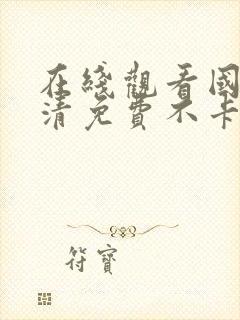 在綫觀看國
清免費不卡
符寶